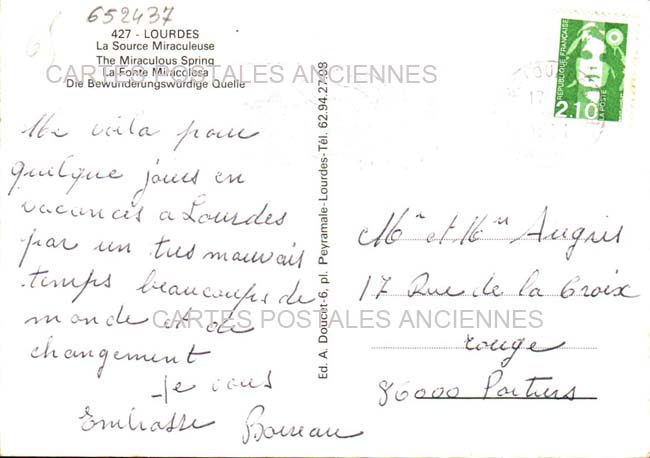 652437
427 - LOURDES
La Source Miraculeuse
The Miraculous Spring
La Fonte Miracolosa
Die Bewunderungswürdige Quelle
CARTES POSTALES ANCIENNES
REPUBLIQUE FRANÇAISE
2,10
LA POSTE
Me voila pour
quelque jours en
vacances a Lourdes
par un tres mauvais
temps beaucoups de
monde et de
changement
Je vous
Embrasse Boireau
Ed. A. Doucet-6, pl. Peyramale-Lourdes-Tél. 62.94.27.08
Mr et Mme Augris
17 Rue de la Croix
rouge
86000 Poitiers
CARTES POSTALES ANCIENNES